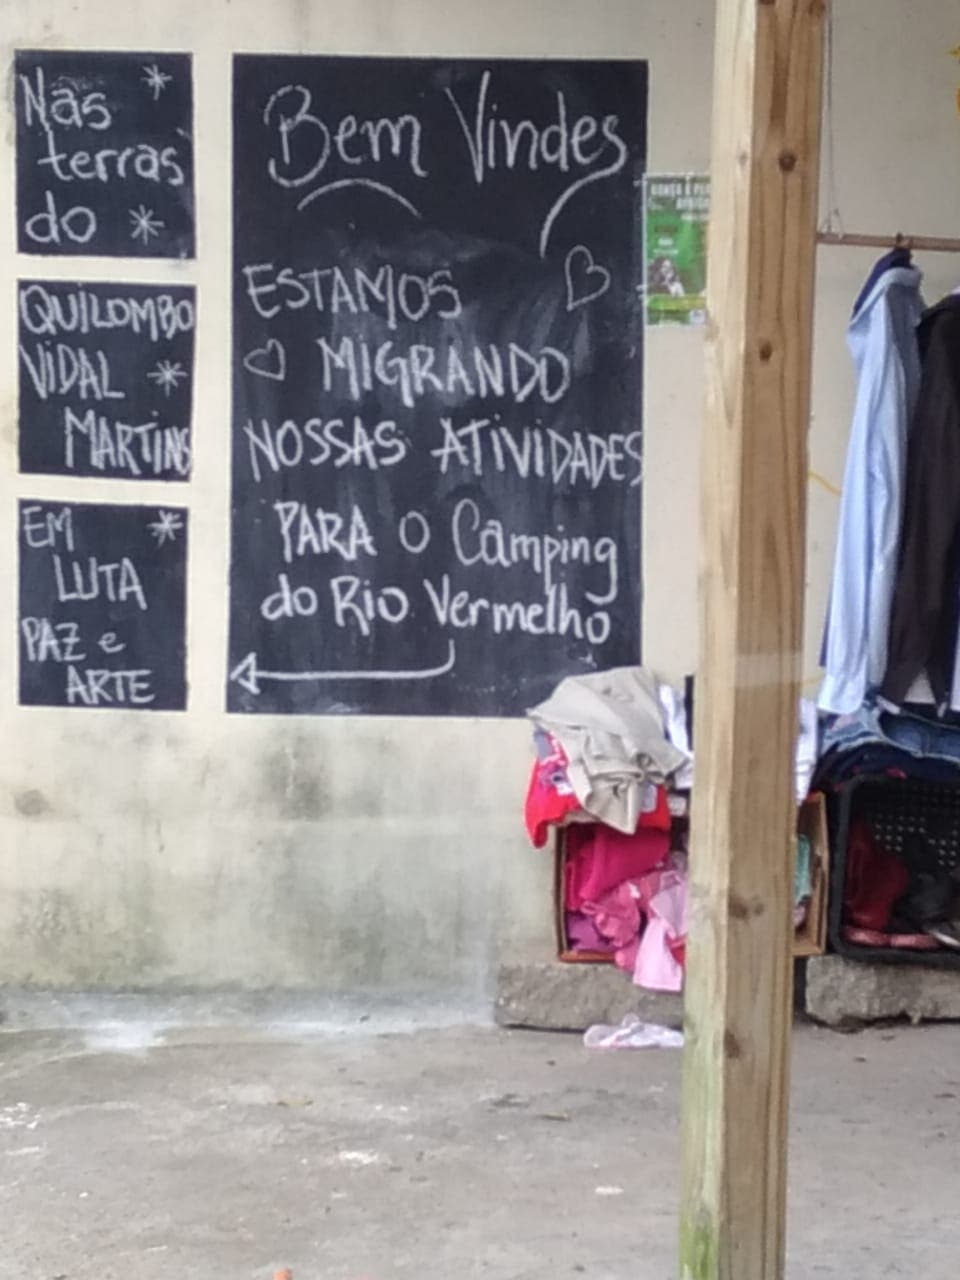 Nas
terras
do
QUILOMBO
VIDAL
MARTINS
EM
LUTA
PAZ e
ARTE
Bem Vindes
ESTAMOS
MIGRANDO
NOSSAS ATIVIDADES
PARA O Camping
do Rio Vermelho